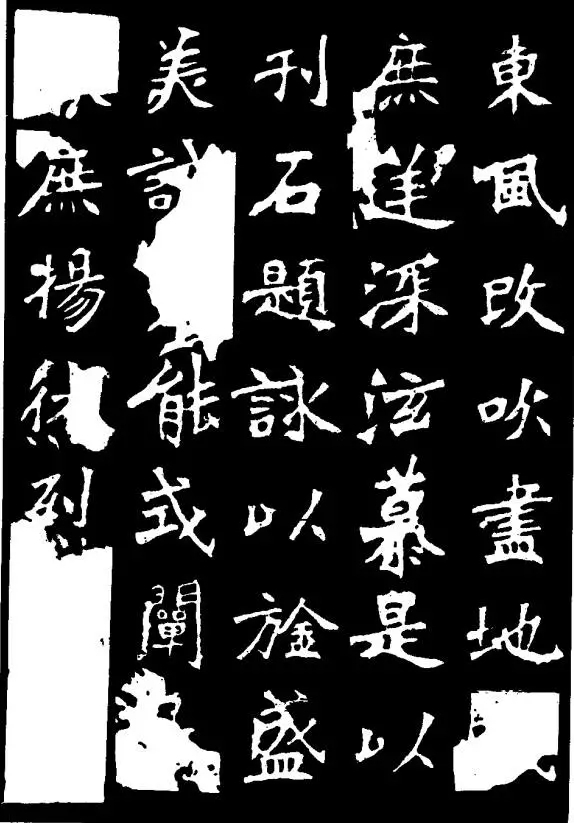 東風改吹盡地
庶深泫慕是以
刊石題詠以旌盛
美能式闡
庶揚